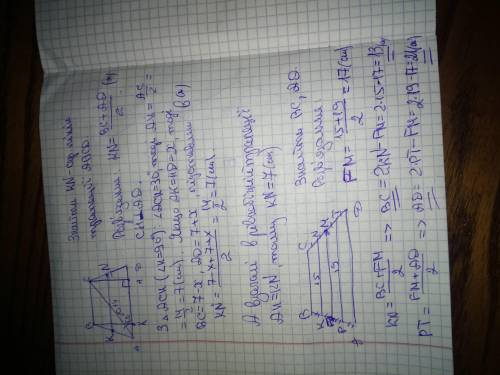 Знайти KN - сер. лінію
трапеції ABCD.
Розв'язання KN = (BC + AD)/2 (м)
CH ⊥ AD.
З △ACH (∠H=90°), ∠ACH=30, тоді AH = AC/2 =
= 14/2 = 7 (см). Якщо AK=HD=x, тоді
BC=7-x AD=7+x, підставимо в (м)
KN = (7-x+7+x)/2 = 14/2 = 7 (см).
А взагалі в рівнобічній трапеції
AH=KN тому KN=7 (см)
Знайти BC, AD.
Розв'язання
FM = (15+19)/2 = 17 (см)
KN = (BC+FM)/2 => BC = 2KN - FM = 2·15-17=13 (см)
PT = (FM+AD)/2 => AD = 2·PT - FM = 2·19-17=21 (см)
B
C
K
N
A
H
D
B
C
K
15
N
F
M
P
19
T
A
D